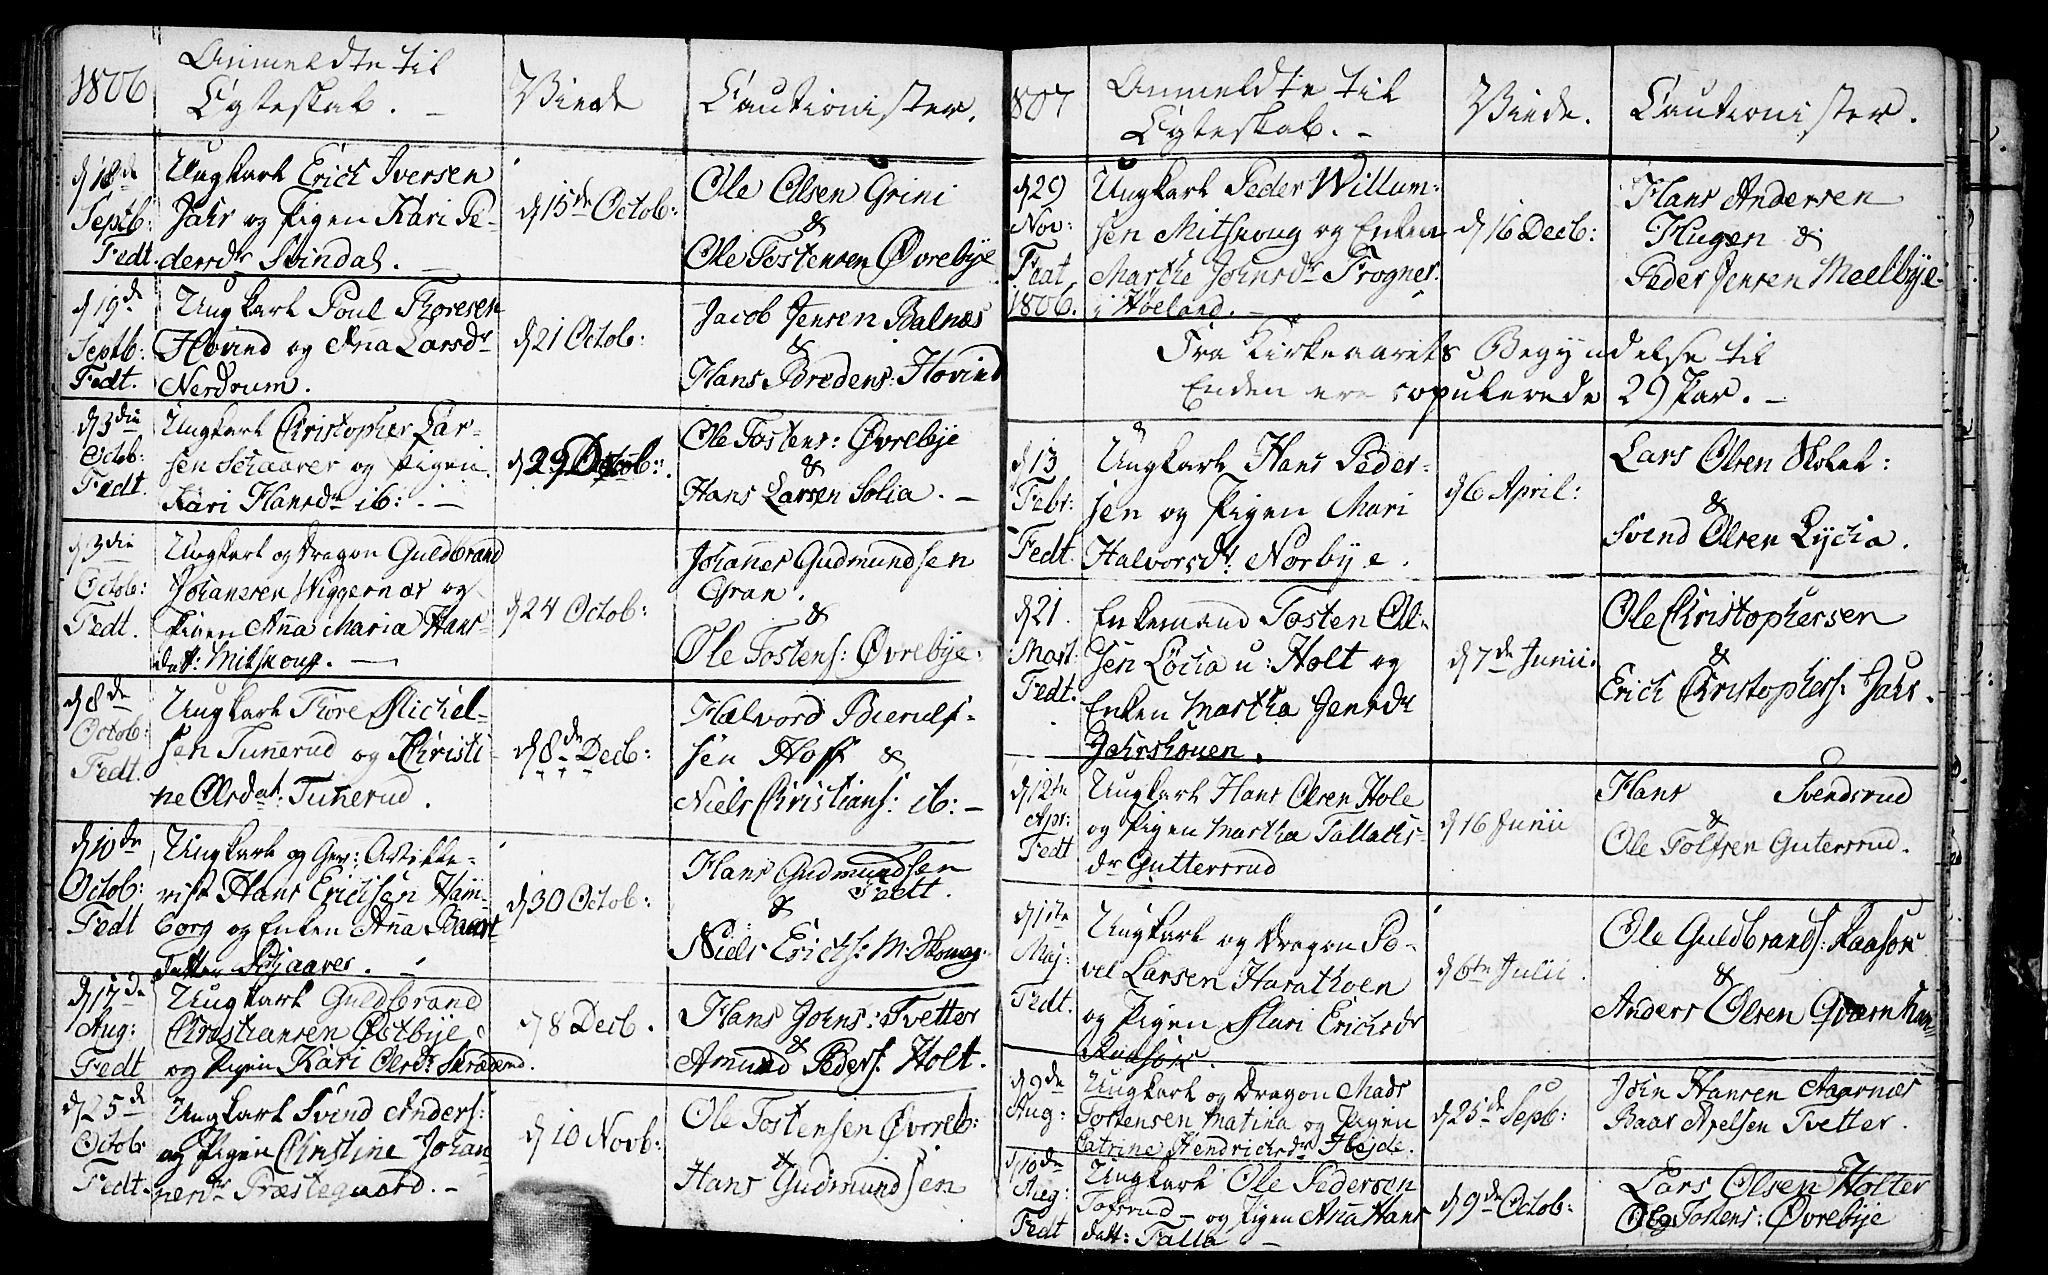 1806
Anmeldte til
Egteskab. -
Viede
Cautionister.
d 18de
Septb:
Fedt.
Ungkarl Erich Iversen
Jahr og Pigen Kari Pe-
dersdr Svindal. -
d 15de Octob:
Ole Olsen Grini
&
Ole Tostensen Øvrebye
d 19de
Septb:
Fedt.
Ungkarl Poul Thoresen
Hovind og Ana Larsdr
Nerdrum.
d 21 Octob:
Jacob Jensen Balnæs
&
Hans Bredens: Hovind
d 3die
Octob:
Fedt.
Ungkarl Christopher Lar-
sen Schaarer og Pigen
Kari Hansdr ib: . -
d 29 Octob:
Ole Tostens: Øvrebye
&
Hans Larsen Solia. -
d 3die
Octob:
Fedt.
Ungkarl og Dragon Guldbrand
Johansen Wiggernæs og
Pigen Ana Maria Hans-
datt: Mitskoug. -
d 24 Octob:
Johanes Gudmundsen
Gran.
&
Ole Tostens: Øvrebye.
d 8de
Octob:
Fedt.
Ungkarl Thore Michel-
sen Tunerud og Christi-
ne Olsdat: Tunerud.
d 8de Decb:
Halvord Bierulf-
sen Hoff &
Niels Christians: ib: -
d 10de
Octob:
Fedt
Ungkarl og Gev: Artille-
rist Hans Erichsen Ham-
borg og Enken Ana Baars-
datter Schaarer. -
d 30 Octob:
Hans Gudmundsen
Fedt.
&
Niels Erichs: M:skoug.
d 17de
Aug:
Fedt
Ungkarl Guldbrand
Christiansen Østbye
og Pigen Kari Olsdr
d 8 Decb.
Hans Johns: Tvetter
&
Amund Peders: Holt.
d 25de
Octob:
Fedt.
Ungkarl Svend Anders:
og Pigen Christine Johan-
nesdr Præstegaard. -
d 10 Novb:
Ole Tostensen Øvreb:
&
Hans Gudmundsen
1807
Anmeldte til
Egteskab. -
Viede.
Cautionister.
d 29
Nov:
Fedt
1806.
Ungkarl Peder Willum-
sen Mitskoug og Enken
Marthe Johnsdr Frogner
i Høeland. -
d 16 Decb:
Hans Andersen
Hugen &
Peder Jensen Meelbye.
Fra Kirkeaarets Begyndelse til
Enden ere copulerede 29 Par. -
d 13
Febr:
Fedt.
Ungkarl Hans Peder-
sen og Pigen Mari
Halvorsdr: Norbye.
d 6 April:
Lars Olsen Skolel:
&
Svend Olsen Lycia.
d 21.
Mart:
Fedt.
Enkemand Tosten Ol-
sen Løcia u: Holt og
Enken Martha Jensdr
Jahrshouen.
d 7de Junii.
Ole Christophersen
&
Erich Christophers: Jahr.
d 12te
Apr:
Fedt
Ungkarl Hans Olsen Hole
og Pigen Martha Tallachs-
dr Guttersrud
d 16 Junii
Hans Svendsrud
&
Ole Tolfsen Gutersrud.
d 1ste
Maj:
Fedt.
Ungkarl og Dragon Po-
vel Larsen Harathoen
og Pigen Mari Erichsdr
Raasok.
d 6te Julii.
Ole Guldbrands: Raasok
&
Anders Olsen Qværnhan-
d 9de
Aug:
Ungkarl og Dragon Mads
Tostensen Matina og Pigen
Catrine Hendrichsdr Hejde.
d 25de Sepb:
John Hansen Aaarnæs
Baar Apelsen Tvetter.
d 10de
Aug:
Fedt
Ungkarl Ole Pedersen
Tofsrud - og Pigen Ana Hans
datt: Falla -
d 9de Octob:
Lars Olsen Holter
Ole Tostens: Øvrebye